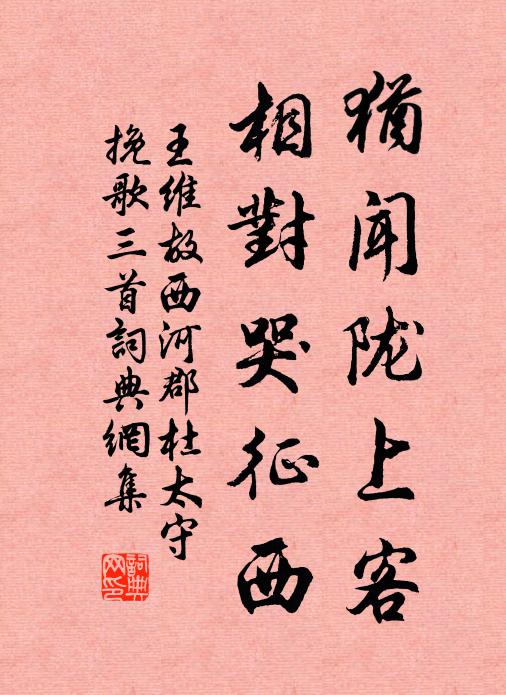 猶聞陇上客
相對哭征西
王維故西河郡杜太守
挽歌三首詞典網集
詞典網印